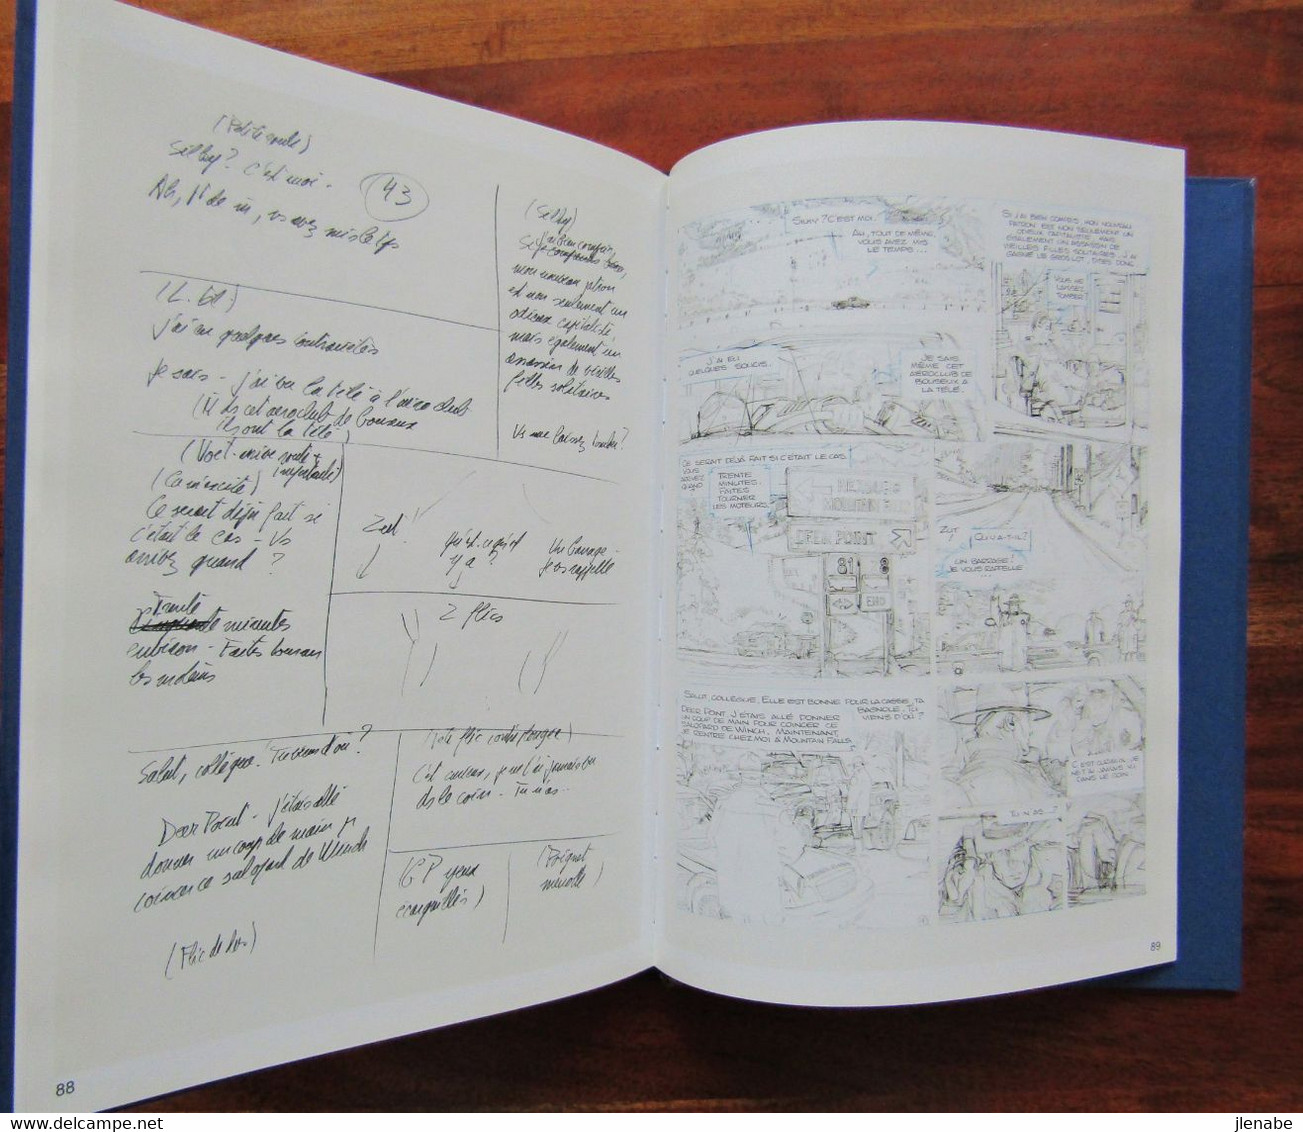 Silky? C'est moi.
43
Ah, tt de m, vs avez mis le tps
(Silky)
mon nouveau patron
est non seulement un
odieux capitaliste
mais également un
assassin de vieilles
filles solitaires
Vs me laissez tomber?
j'ai eu quelques
Je sais - j'ai vu la télé à l'aéroclub
dont la télé)
Ce serait déjà fait si
c'était le cas - Vs
arrivez quand ?
Trente
minutes
environ - Faites tourner
les moteurs
Zut!
qu'est-ce qu'il
y a ?
Un barrage -
Je vs rappelle
2 flics
Salut, collègue. Tu viens d'où ?
Deer Point - J'étais allé
donner un coup de main pr
coincer ce salopard de Winch
(Flic de dos)
C'est curieux, je ne t'ai jamais vu
ds le coin - Tu n'as...
(GP yeux
écarquillés)
(Poignet
menotté)
88
SILKY ? C'EST MOI.
AH, TOUT DE MÊME,
VOUS AVEZ MIS
LE TEMPS ...
SI J'AI BIEN COMPRIS, MON NOUVEAU
PATRON EST NON SEULEMENT UN
ODIEUX CAPITALISTE, MAIS
ÉGALEMENT UN ASSASSIN DE
VIEILLES FILLES SOLITAIRES. J'AI
GAGNÉ LE GROS LOT, DITES DONC.
VOUS ME
LAISSEZ
TOMBER?
J'AI EU
QUELQUES SOUCIS.
JE SAIS.
MÊME CET
AÉROCLUB DE
BOUSEUX A
LA TÉLÉ.
CE SERAIT DÉJÀ FAIT SI C'ÉTAIT LE CAS.
VOUS
ARRIVEZ
QUAND
TRENTE
MINUTES.
FAITES
TOURNER
LES MOTEURS.
DEER POINT
81
8
END
ZUT
QU'Y A-T-IL?
UN BARRAGE!
JE VOUS RAPPELLE
...
SALUT, COLLÈGUE. ELLE EST BONNE POUR LA CASSE, TA
BAGNOLE. TU
VIENS D'OÙ ?
DEER POINT. J'ÉTAIS ALLÉ DONNER
UN COUP DE MAIN POUR COINCER CE
SALOPARD DE WINCH. MAINTENANT,
JE RENTRE CHEZ MOI À MOUNTAIN FALLS.
C'EST CURIEUX, JE
NE T'AI JAMAIS VU
DANS LE COIN.
TU N'AS ...?
89
delcampe.net
jlenabe